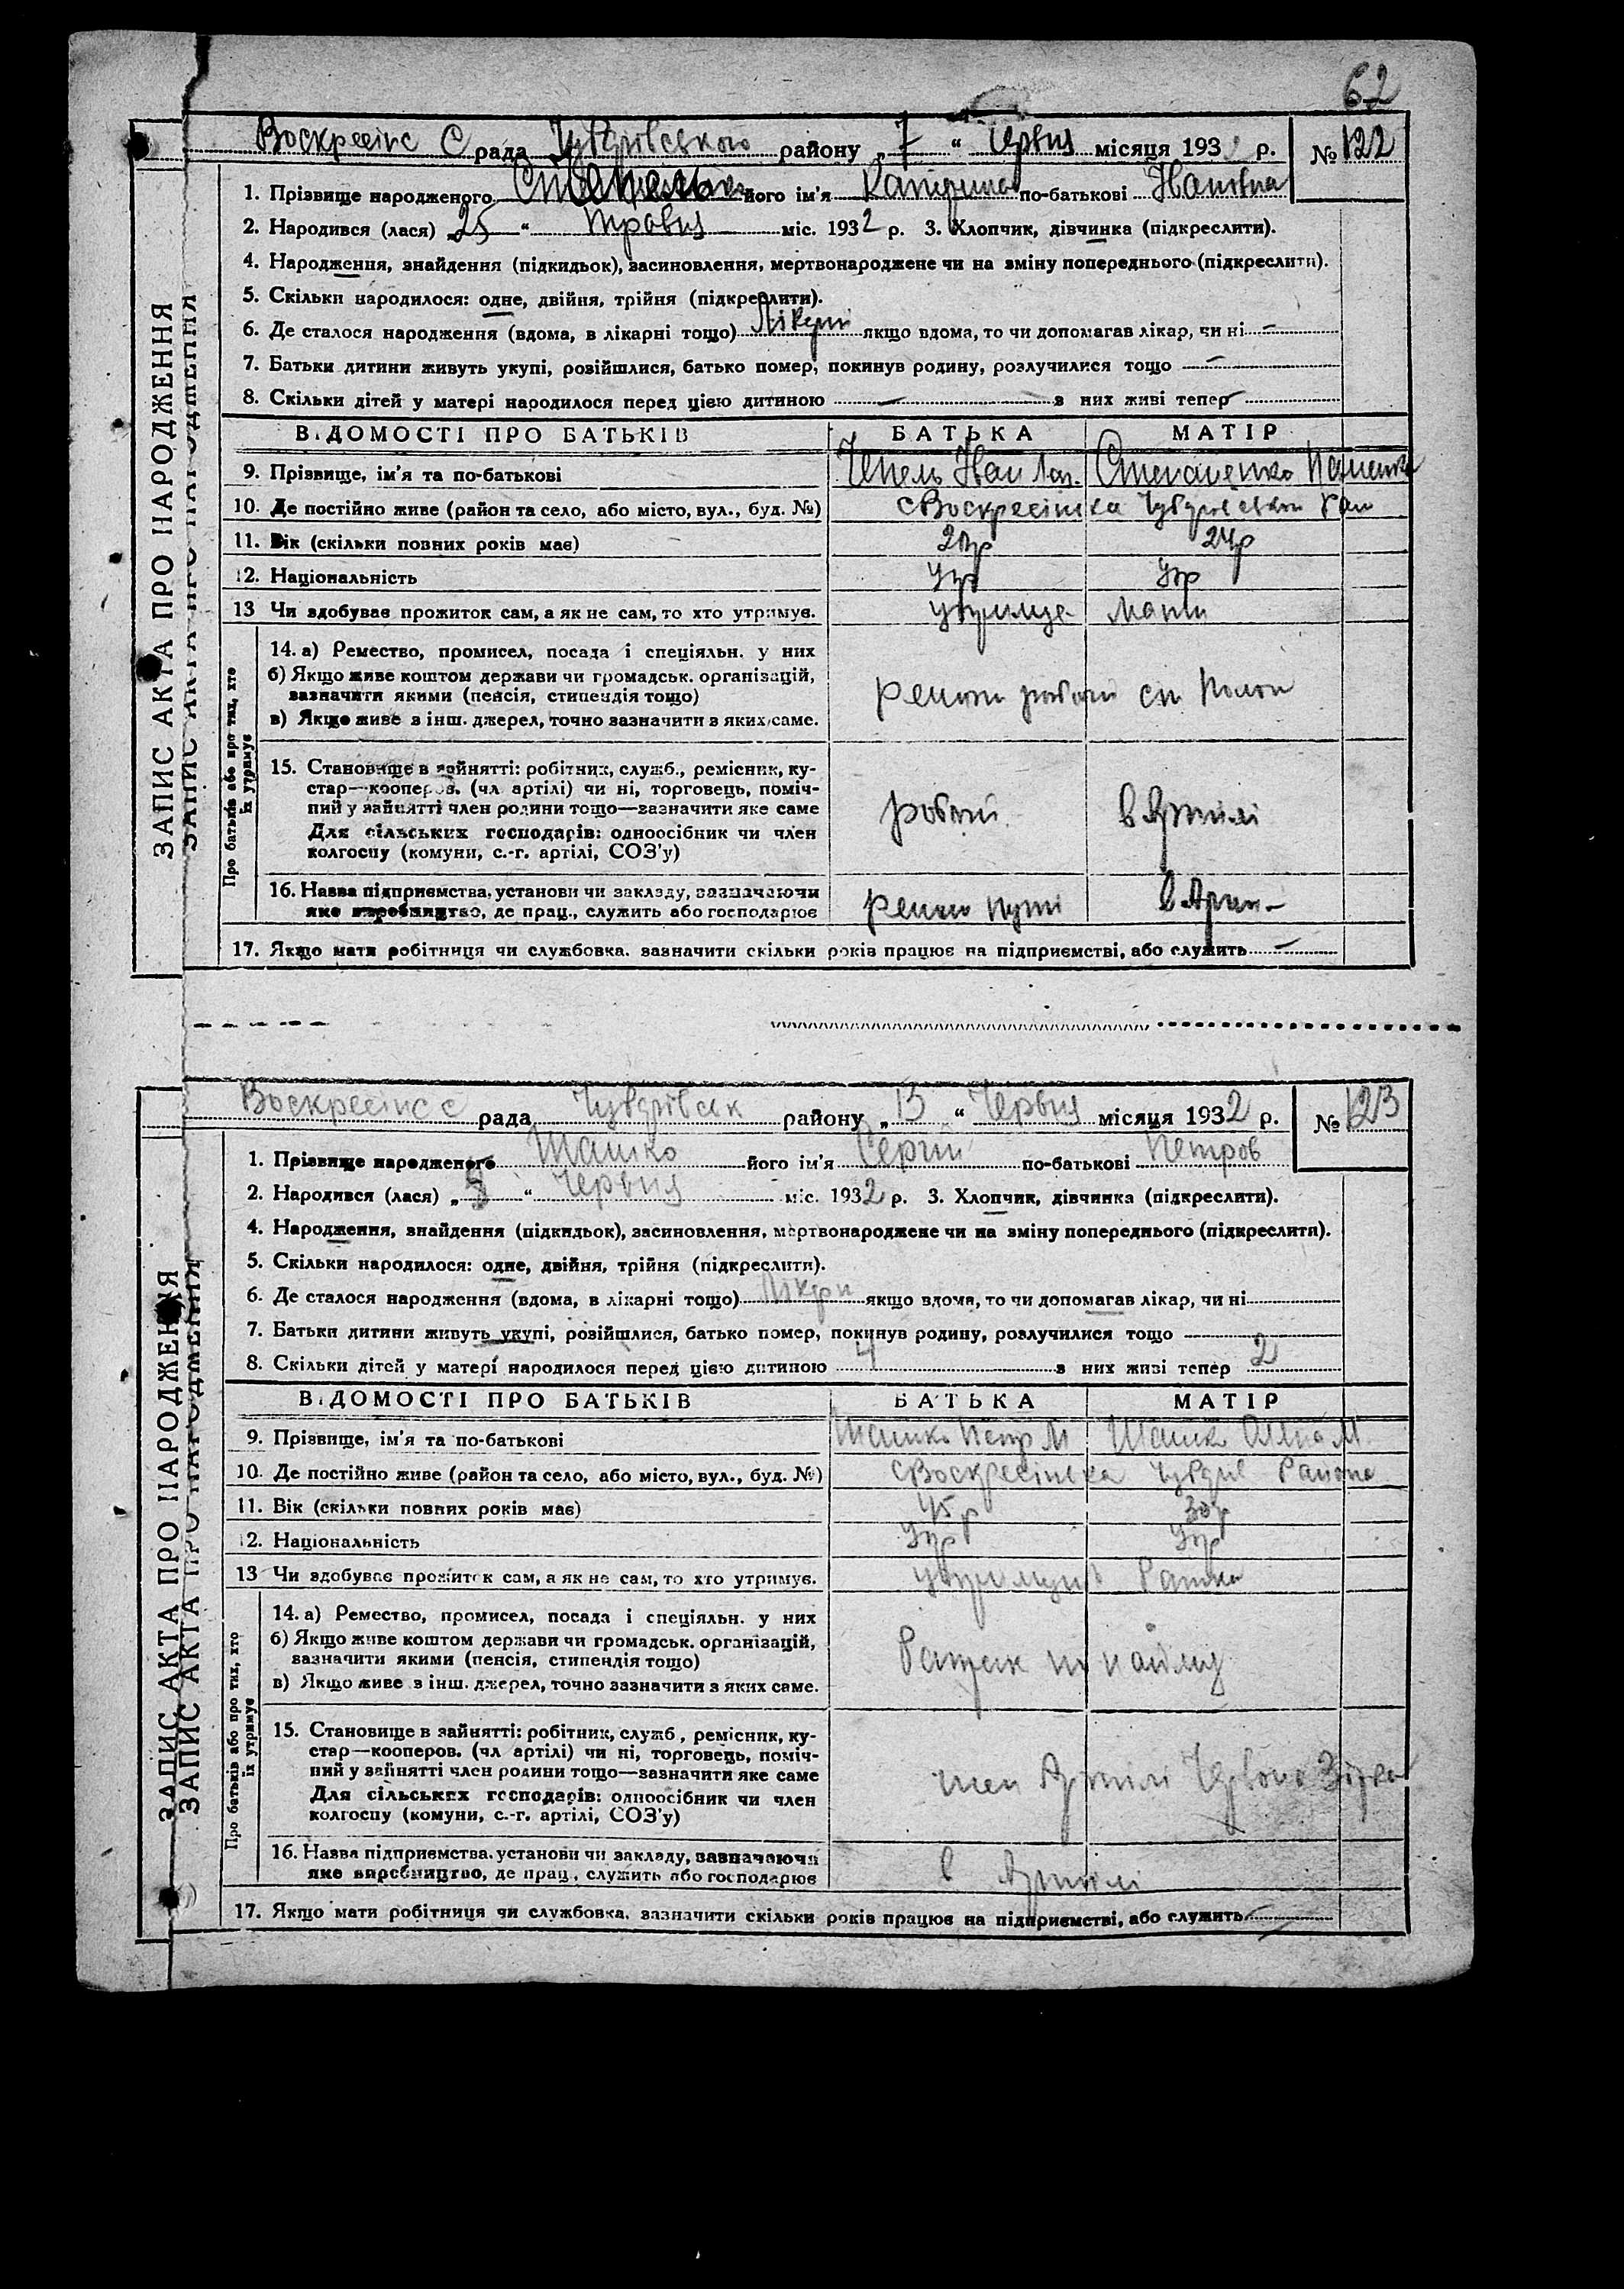 62
Воскресінс С рада Чубарівського району „7 “ Червня місяця 193 р. № 122
1. Прізвище народженого його ім'я Катерина по-батькові Івановна
2. Народився (лася) „25 “ травня міс. 1932 р. 3. Хлопчик, дівчинка (підкреслити).
4. Народження, знайдення (підкидьок), засиновлення, мертвонароджене чи на зміну попереднього (підкреслити).
5. Скільки народилося: одне, двійня, трійня (підкреслити).
6. Де сталося народження (вдома, в лікарні тощо) Лікарні якщо вдома, то чи допомагав лікар, чи ні –
7. Батьки дитини живуть укупі, розійшлися, батько помер, покинув родину, розлучилися тощо –
8. Скільки дітей у матері народилося перед цією дитиною – з них живі тепер –
ЗАПИС АКТА ПРО НАРОДЖЕННЯ
ЗАПИС АКТА ПРО НАРОДЖЕННЯ
ВІДОМОСТІ ПРО БАТЬКІВ БАТЬКА МАТІР
9. Прізвище, ім'я та по-батькові Іван Степаненко
10. Де постійно живе (район та село, або місто, вул., буд. №) с Воскресінка Чубарівськи Рай
11. Вік (скільки повних років має) 24р
12. Національність Укр Укр
13 Чи здобуває прожиток сам, а як не сам, то хто утримує. утримує мати
Про батьків або про тих, хто їх утримує
14. а) Ремество, промисел, посада і спеціяльн. у них
б) Якщо живе коштом держави чи громадськ. організацій,
зазначити якими (пенсія, стипендія тощо)
в) Якщо живе з інш. джерел, точно зазначити з яких саме.
15. Становище в зайнятті: робітник, служб., ремісник, ку-
стар—кооперов. (чл артілі) чи ні, торговець, поміч-
ний у зайнятті член родини тощо—зазначити яке саме
Для сільських господарів: одноосібник чи член
колгоспу (комуни, с.-г. артілі, СОЗ'у)
в Артілі
16. Назва підприємства, установи чи закладу, зазначаючи
яке виробництво, де прац., служить або господарює
17. Якщо мати робітниця чи службовка. зазначити скільки років працює на підприємстві, або служить –
Воскресінс с рада Чубарівськ району „13 “ Червня місяця 1932 р. № 123
1. Прізвище народженого Машко його ім'я Сергій по-батькові Петров
2. Народився (лася) „5 “ Червня міс. 1932 р. 3. Хлопчик, дівчинка (підкреслити).
4. Народження, знайдення (підкидьок), засиновлення, мертвонароджене чи на зміну попереднього (підкреслити).
5. Скільки народилося: одне, двійня, трійня (підкреслити).
6. Де сталося народження (вдома, в лікарні тощо) Лікрн якщо вдома, то чи допомагав лікар, чи ні
7. Батьки дитини живуть укупі, розійшлися, батько помер, покинув родину, розлучилися тощо
8. Скільки дітей у матері народилося перед цією дитиною 4 з них живі тепер 2
ЗАПИС АКТА ПРО НАРОДЖЕННЯ
ЗАПИС АКТА ПРО НАРОДЖЕННЯ
ВІДОМОСТІ ПРО БАТЬКІВ БАТЬКА МАТІР
9. Прізвище, ім'я та по-батькові Машко Петр М Машко Олена М
10. Де постійно живе (район та село, або місто, вул., буд. №) с Воскресінька Чубарів Района
11. Вік (скільки повних років має) 45р
12. Національність Укр Укр
13 Чи здобуває прожиток сам, а як не сам, то хто утримує.
Про батьків або про тих, хто їх утримує
14. а) Ремество, промисел, посада і спеціяльн. у них
б) Якщо живе коштом держави чи громадськ. організацій,
зазначити якими (пенсія, стипендія тощо)
в) Якщо живе з інш. джерел, точно зазначити з яких саме.
15. Становище в зайнятті: робітник, служб., ремісник, ку-
стар—кооперов. (чл артілі) чи ні, торговець, поміч-
ний у зайнятті член родини тощо—зазначити яке саме
Для сільських господарів: одноосібник чи член
колгоспу (комуни, с.-г. артілі, СОЗ'у)
член Артілі Червона Зірка
16. Назва підприємства, установи чи закладу, зазначаючи
яке виробництво, де прац., служить або господарює
в Артілі
17. Якщо мати робітниця чи службовка. зазначити скільки років працює на підприємстві, або служить –